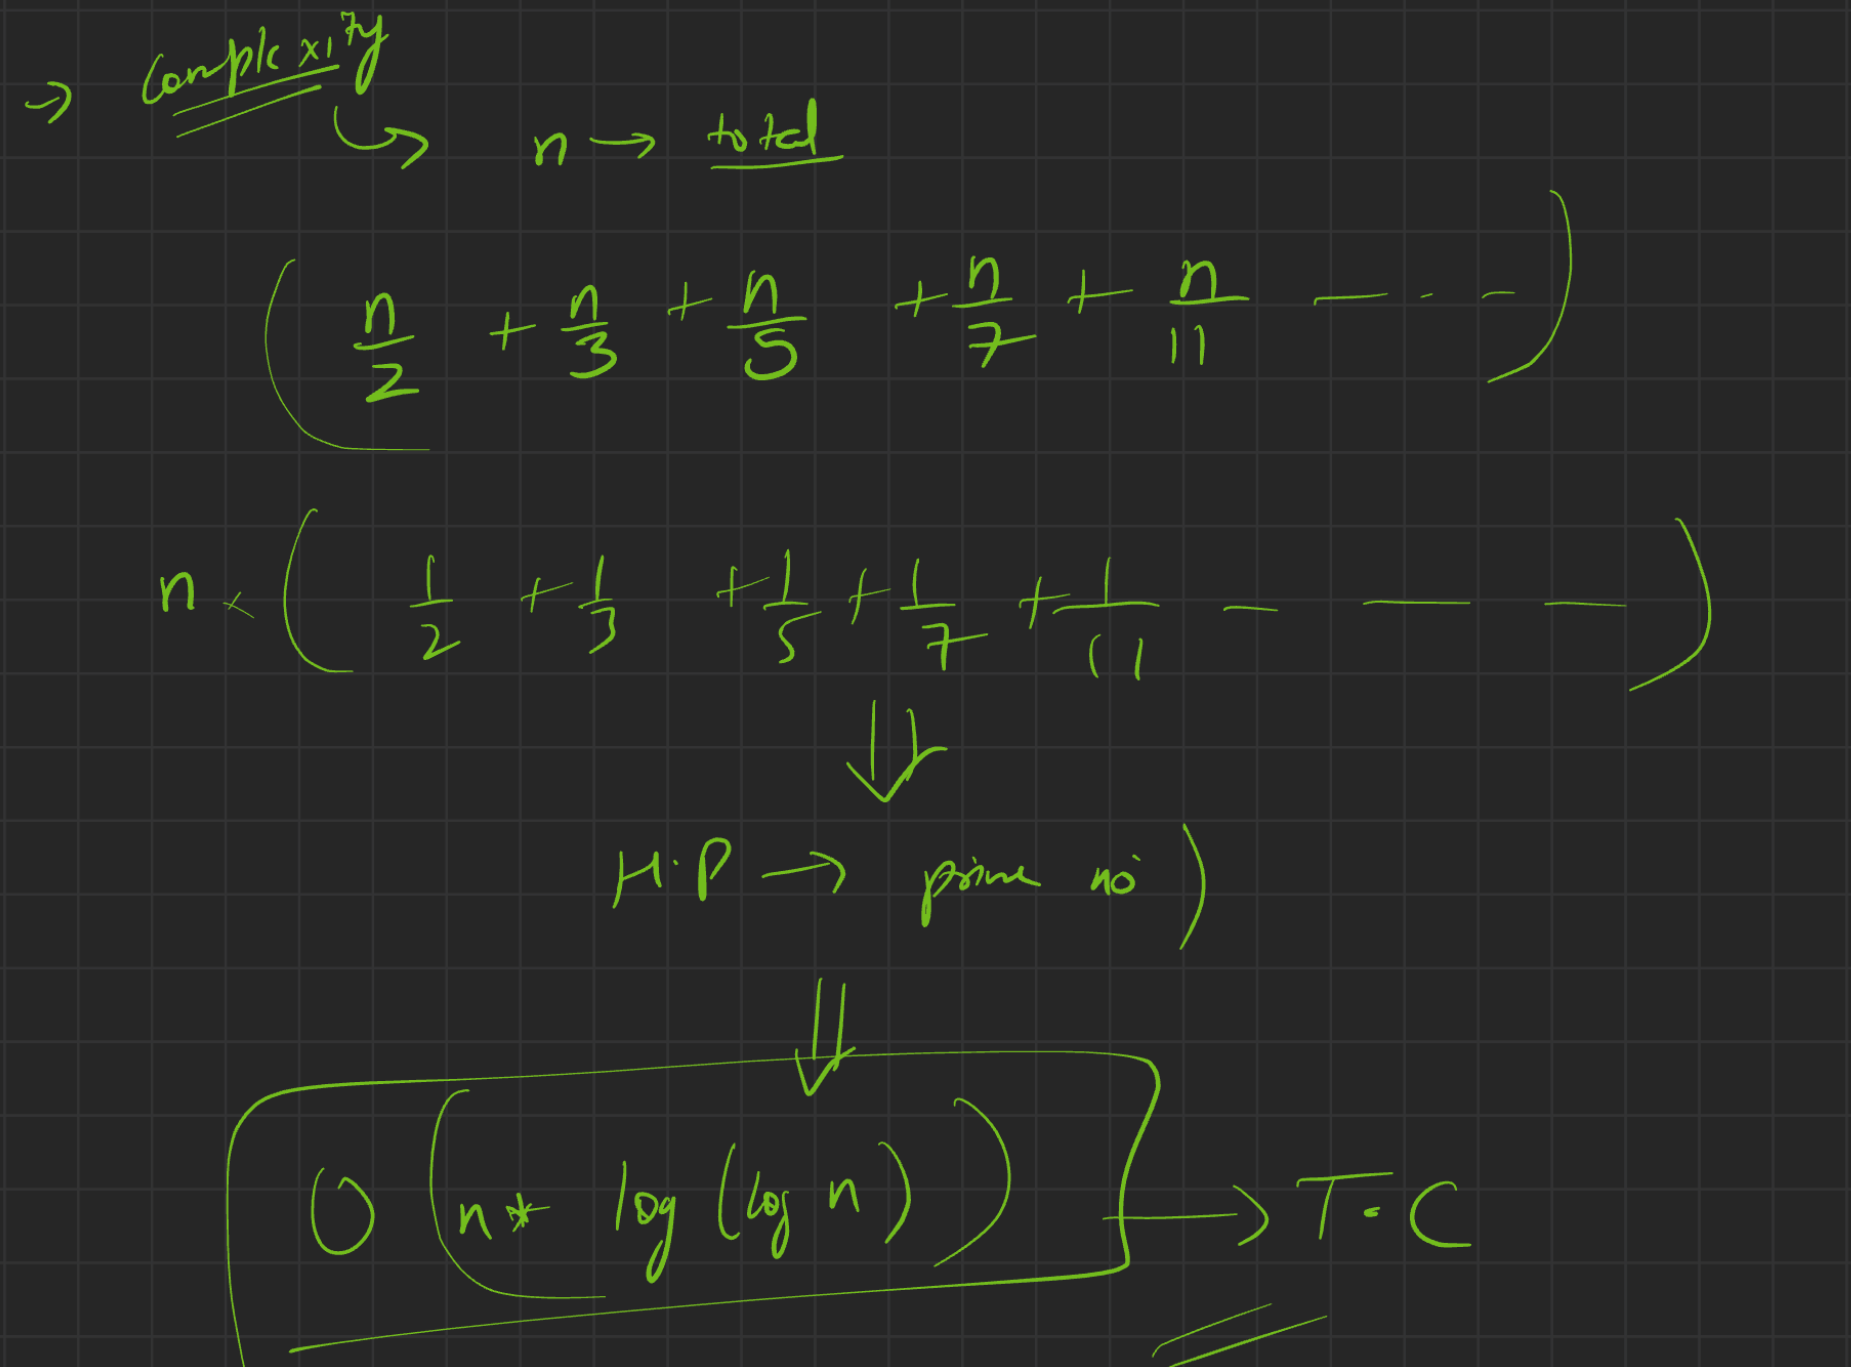 → Complexity
↳ n → total
( n/2 + n/3 + n/5 + n/7 + n/11 — - - )
n × ( 1/2 + 1/3 + 1/5 + 1/7 + 1/11 — — — )
⇓
H.P → prime no )
⇓
O ( n * log ( log n ) ) → T.C